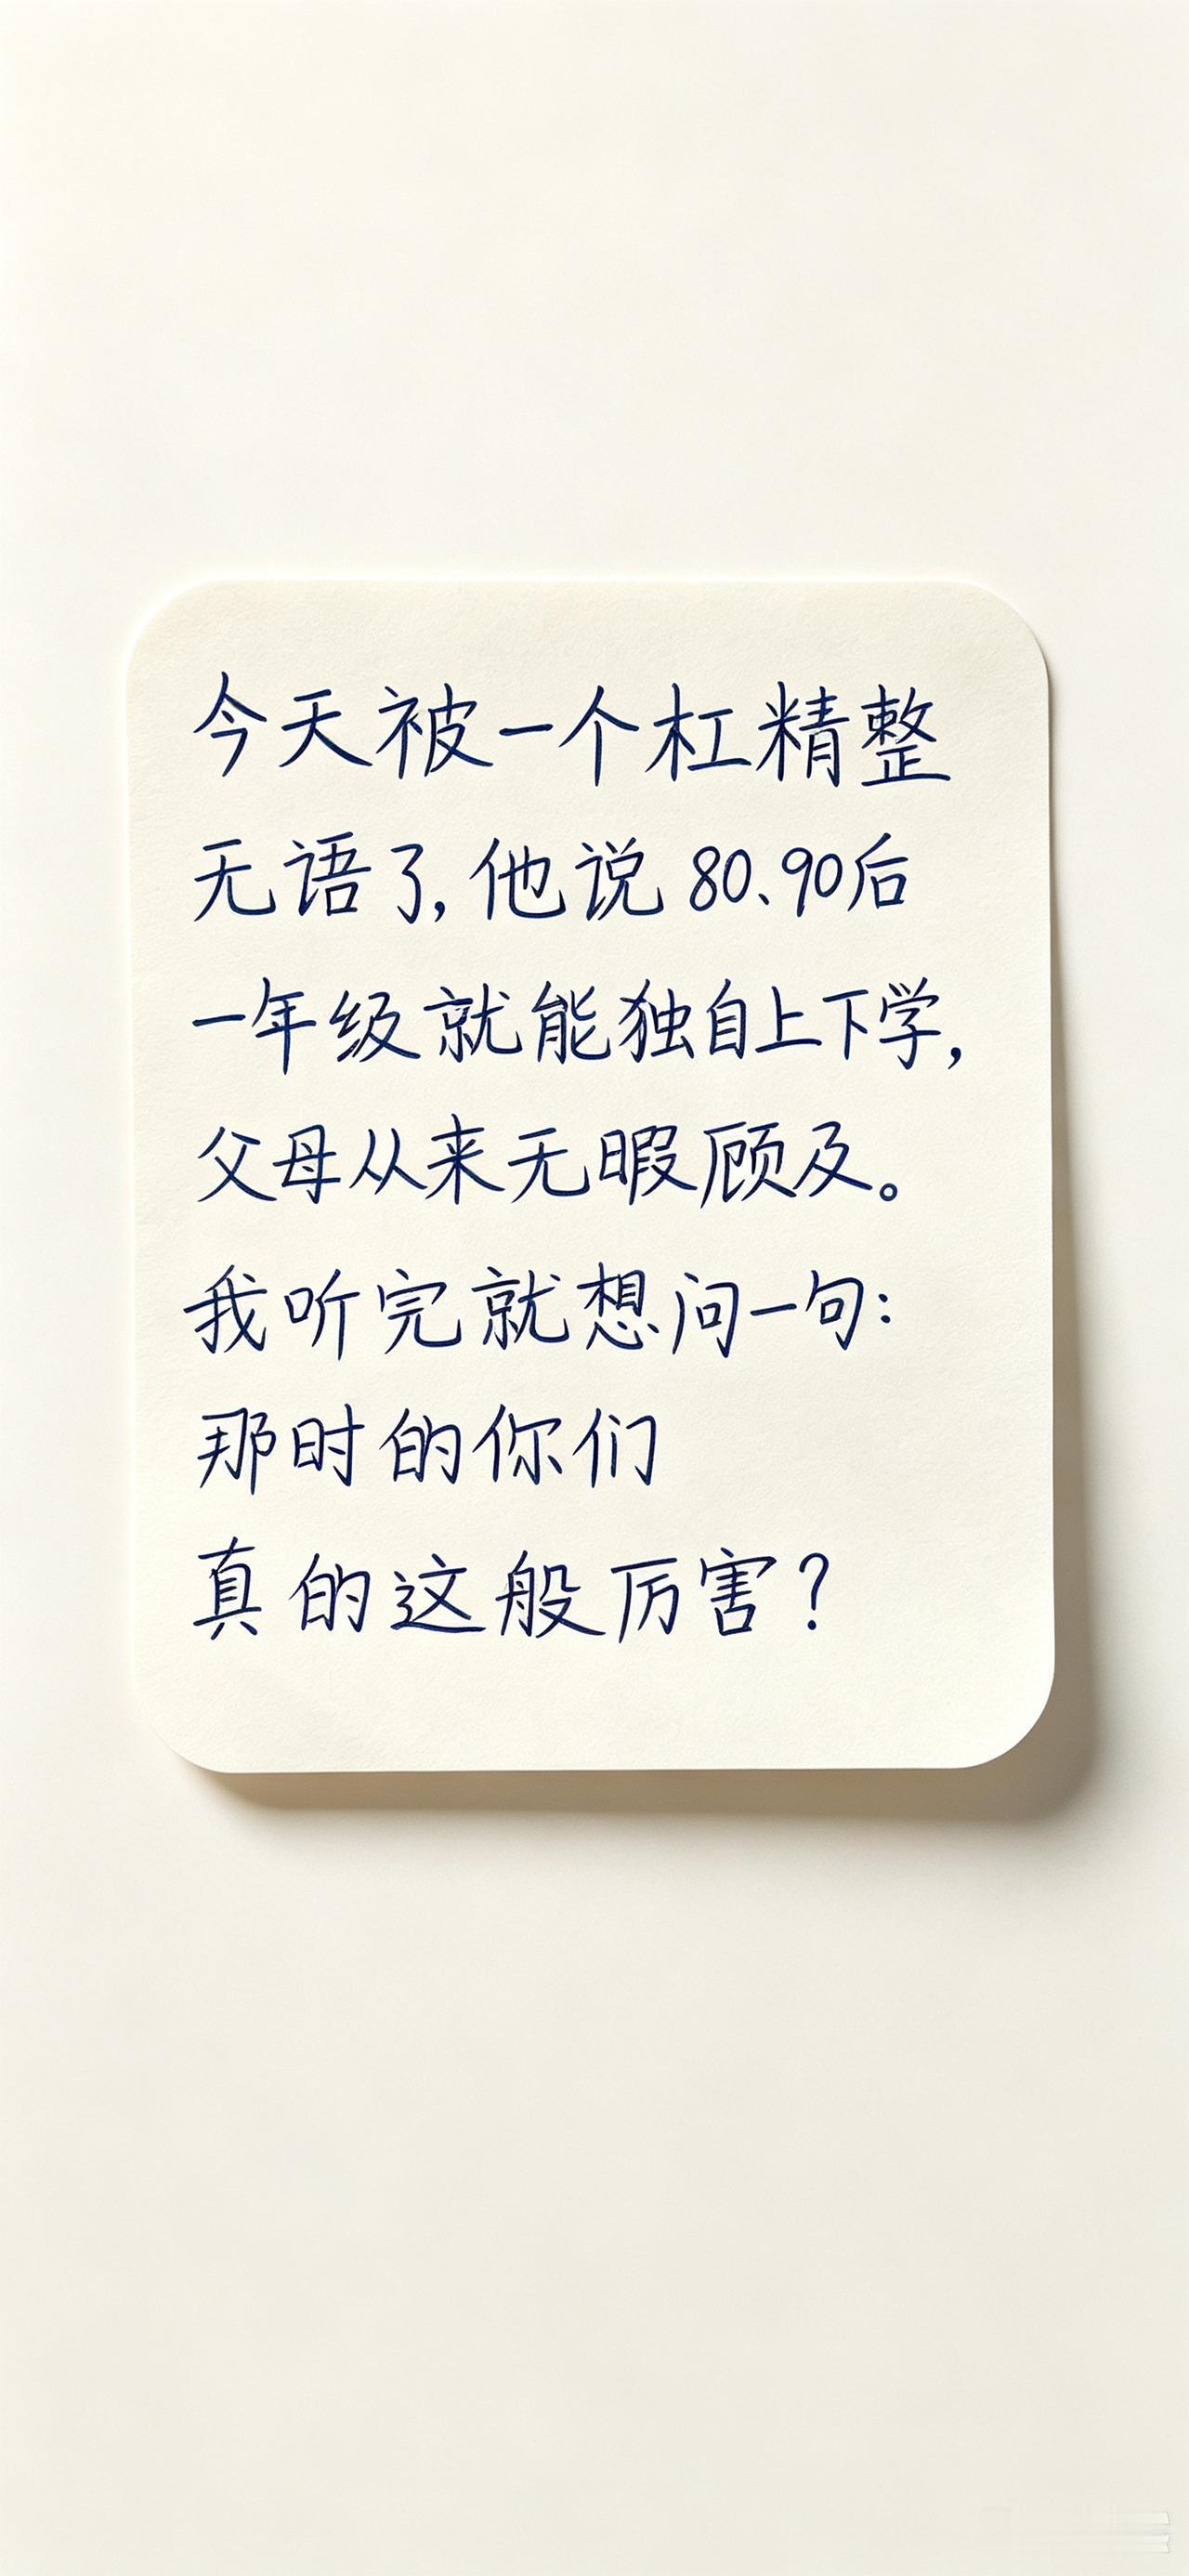 今天被一个杠精整
无语了,他说80、90后
一年级就能独自上下学,
父母从来无暇顾及。
我听完就想问一句:
那时的你们
真的这般厉害?